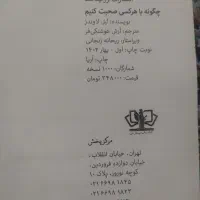 چگونه با هر کسی صحبت کنیم
نویسنده: لیل لاوندز
مترجم: آرش هوشنگی‌فر
ویراستار: ریحانه زنجانی
نوبت چاپ: اول - بهار ۱۴۰۲
چاپ: آریا
شمارگان: ۱۰۰۰ نسخه
قیمت: ۲۴۸۰۰۰ تومان
مرکز پخش
تهران، خیابان انقلاب،
خیابان دوازده فروردین،
کوچه نوروز، پلاک ۱۰
۰۲۱ ۶۶۹۸ ۱۸۲۵
۰۲۱ ۶۶۹۸ ۱۸۴۵